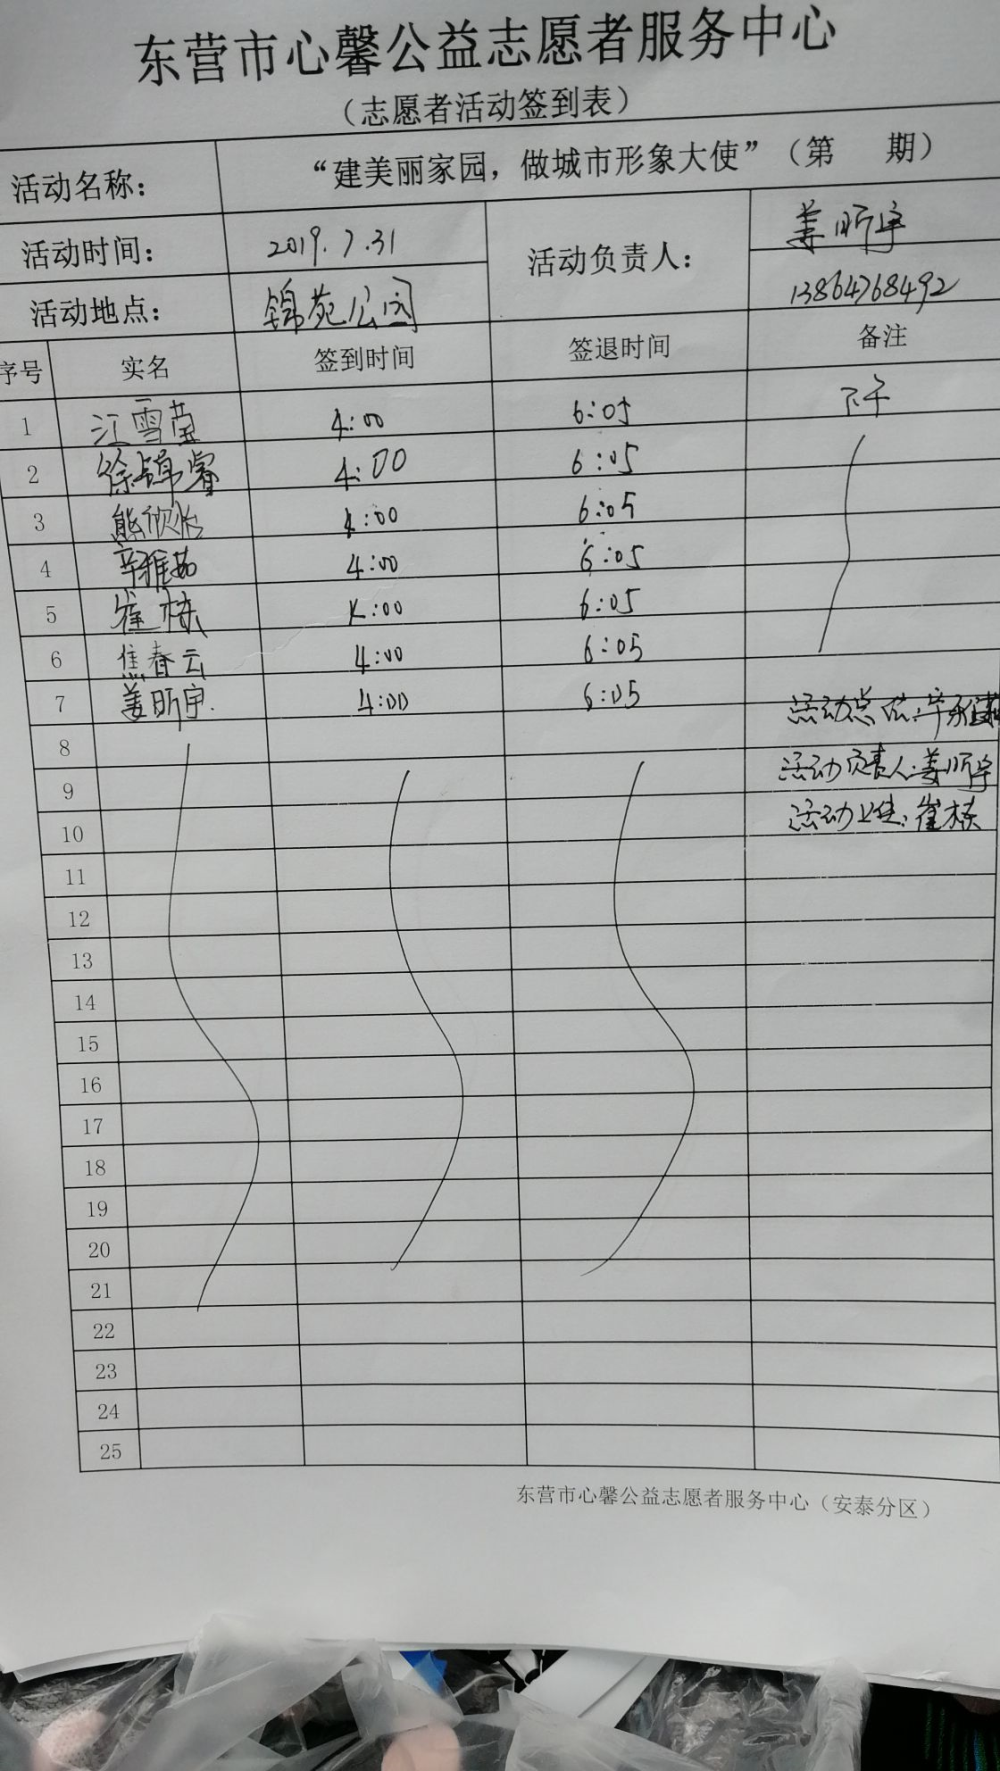 东营市心馨公益志愿者服务中心
（志愿者活动签到表）
活动名称： “建美丽家园，做城市形象大使”（第 期）
活动时间： 2019.7.31 活动负责人： 姜昕宇
13864768492
活动地点： 锦苑公园
序号 实名 签到时间 签退时间 备注
1 江雪莹 4:00 6:05 下午
2 徐锦睿 4:00 6:05
3 熊欣怡 4:00 6:05
4 辛雅茹 4:00 6:05
5 崔栋 4:00 6:05
6 焦春云 4:00 6:05
7 姜昕宇 4:00 6:05
活动总
8
活动负责人：姜昕宇
9
活动 ：崔栋
10
11
12
13
14
15
16
17
18
19
20
21
22
23
24
25
东营市心馨公益志愿者服务中心（安泰分区）